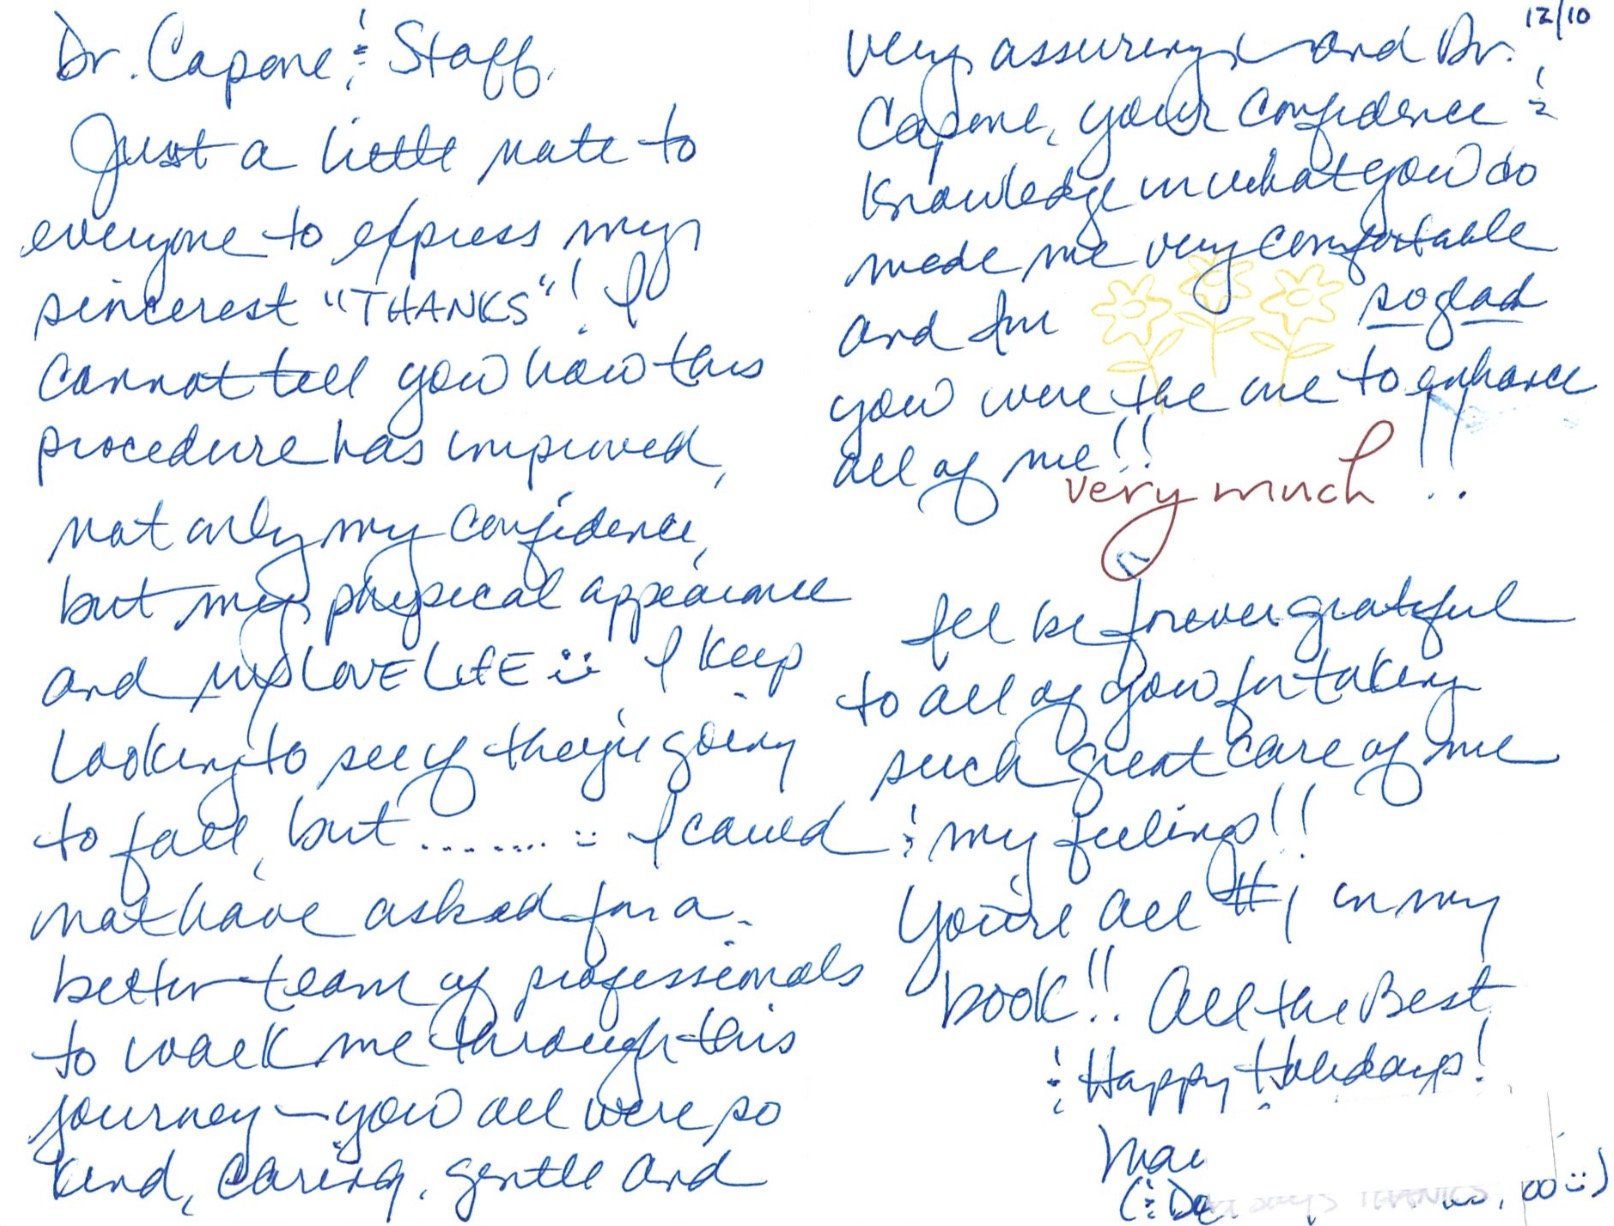 Dr. Capone & Staff,
Just a little note to
everyone to express my
sincerest "THANKS"! I
cannot tell you how this
procedure has improved,
not only my confidence,
but my physical appearance
and my LOVE LIFE :) I keep
looking to see if they're going
to fall, but ........ :) I could
not have asked for a
better team of professionals
to walk me through this
journey — you all were so
kind, caring, gentle and
12/10
very assuring and Dr.
Capone, your confidence &
knowledge in what you do
made me very comfortable
and I'm so glad
you were the one to enhance
all of me!! very much !!
I'll be forever grateful
to all of you for taking
such great care of me
& my feelings!!
You're all #1 in my
book!! All the Best
& Happy Holidays!
(& THANKS too :)